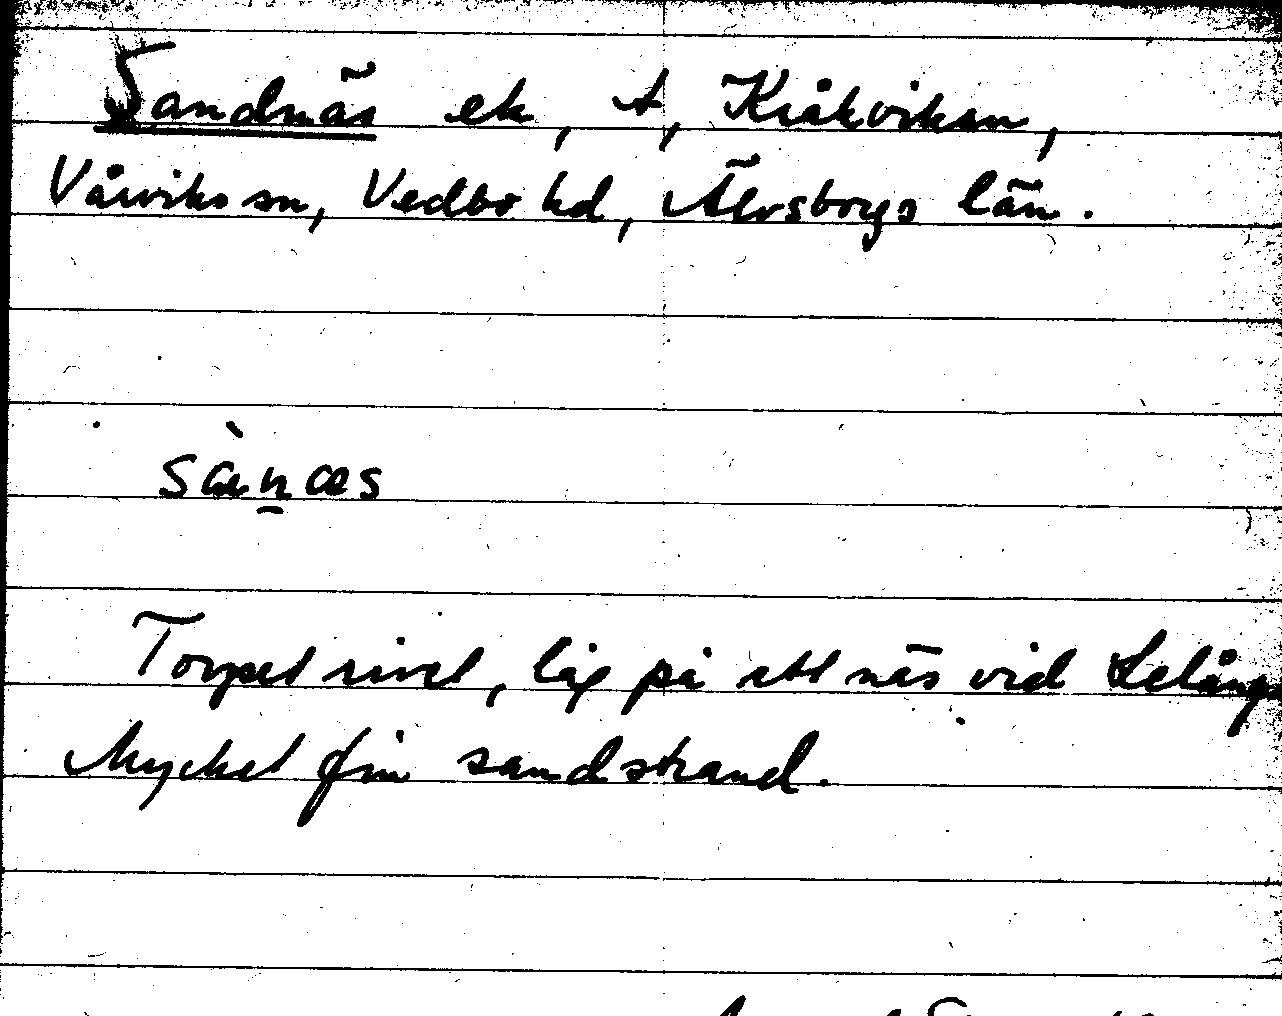 Sandnäs ek, t, Kråkviken,
Vårviks sn, Vedbo hd, Älvsborgs län.
sæ̀n̲æs
Torpet rivet, låg på ett näs vid Lelång
Mycket fin sandstrand.